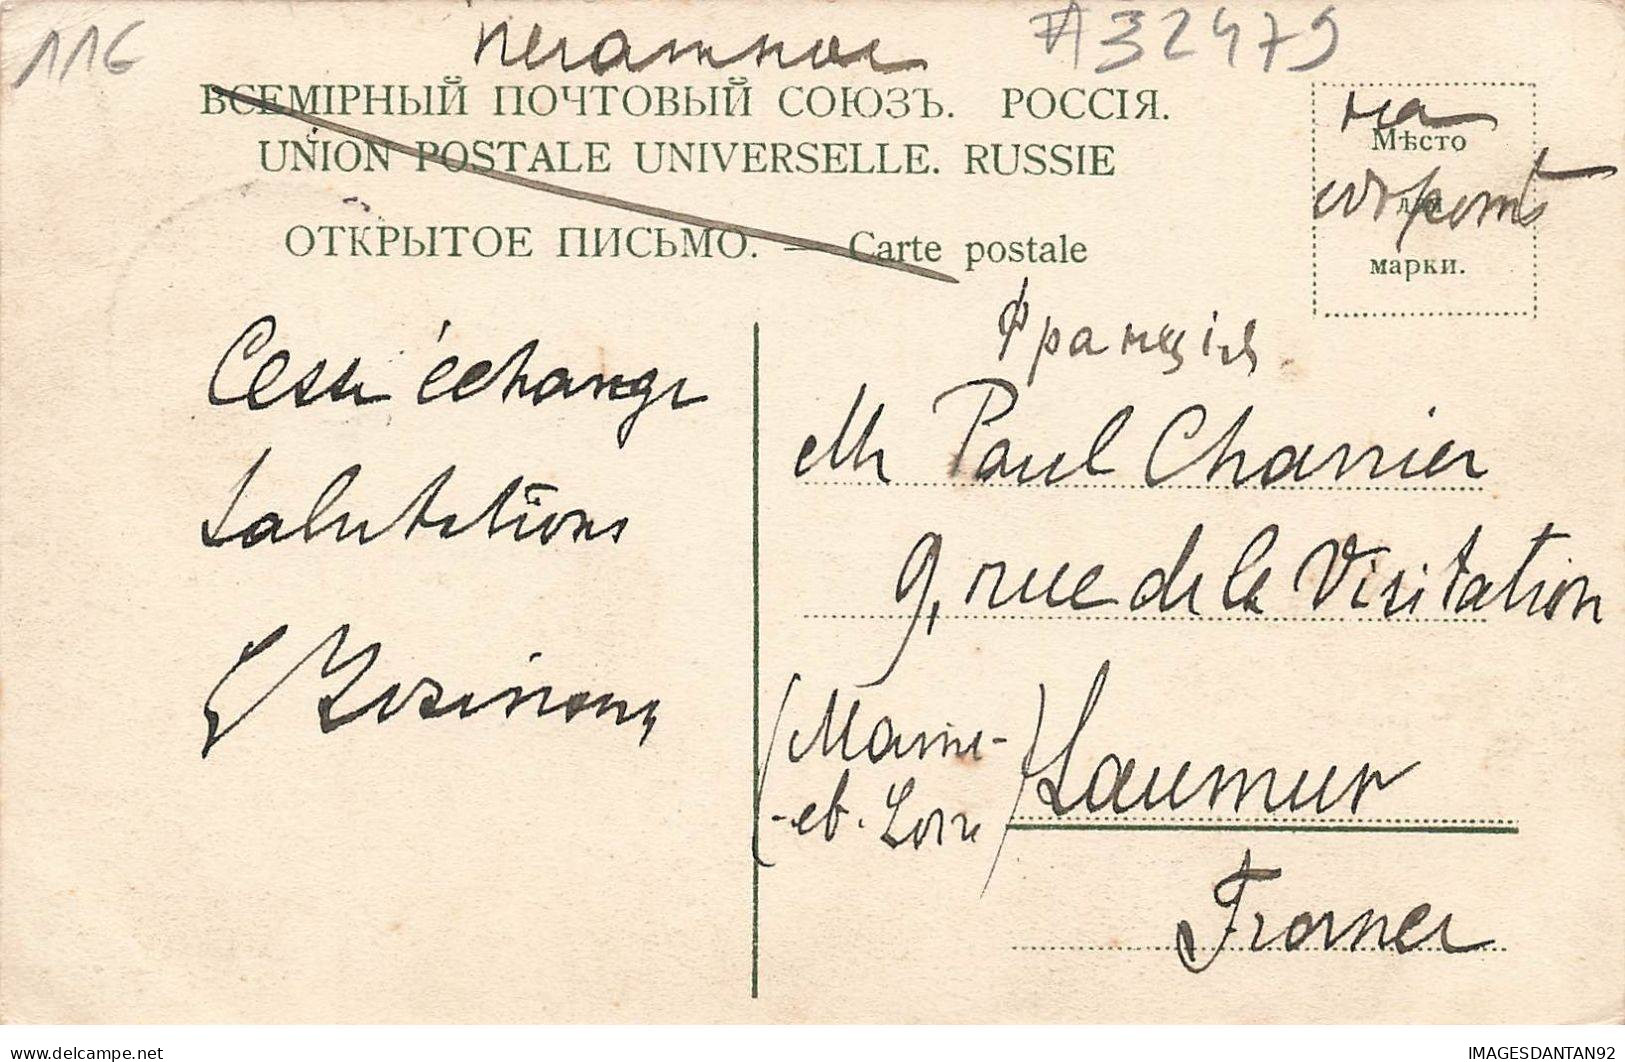 116
печатное
#32479
ВСЕМІРНЫЙ ПОЧТОВЫЙ СОЮЗЪ. РОССІЯ.
UNION POSTALE UNIVERSELLE. RUSSIE
ОТКРЫТОЕ ПИСЬМО. — Carte postale
на
Мѣсто
для
марки.
оборотѣ
Франція
Mr Paul Charrier
9, rue de la Visitation
(Maine-
-et-Loire)
Saumur
France
Cesse échange
Salutations
IMAGESDANTAN92
delcampe.net